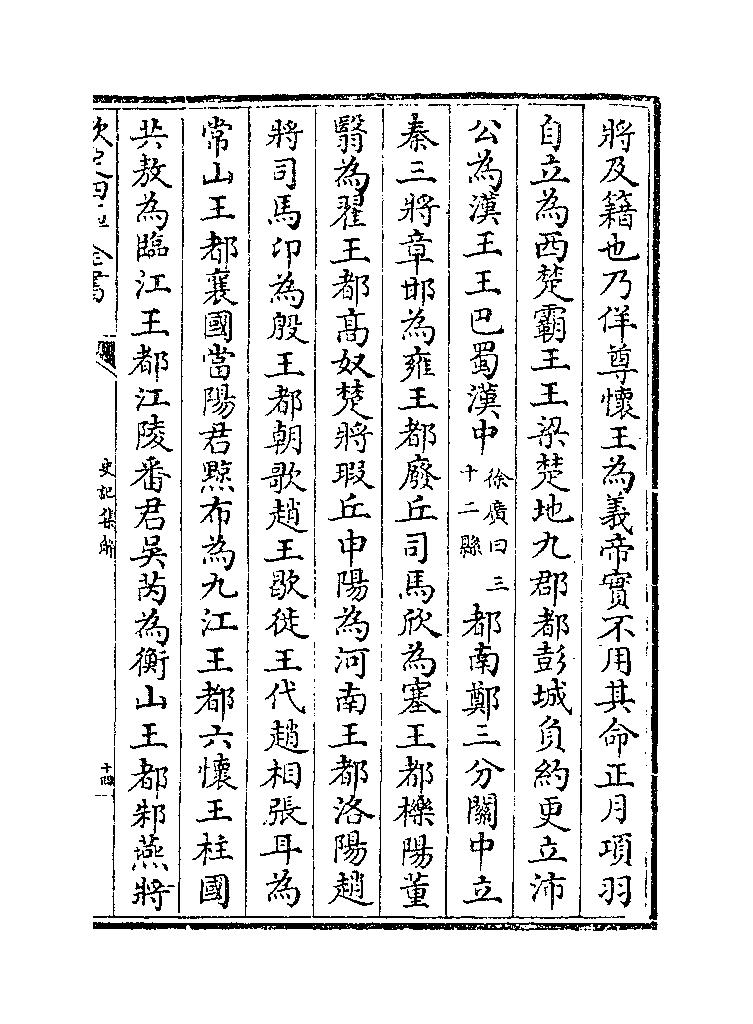 將及籍也乃佯尊懷王為義帝實不用其命正月項羽
自立為西楚霸王王梁楚地九郡都彭城負約更立沛
公為漢王王巴蜀漢中
徐廣曰三
十二縣
都南鄭三分關中立
秦三將章邯為雍王都廢丘司馬欣為塞王都櫟陽董
翳為翟王都高奴楚將瑕丘申陽為河南王都洛陽趙
將司馬卬為殷王都朝歌趙王歇徙王代趙相張耳為
常山王都襄國當陽君黥布為九江王都六懷王柱國
共敖為臨江王都江陵番君吳芮為衡山王都邾燕將
史記集解
十四